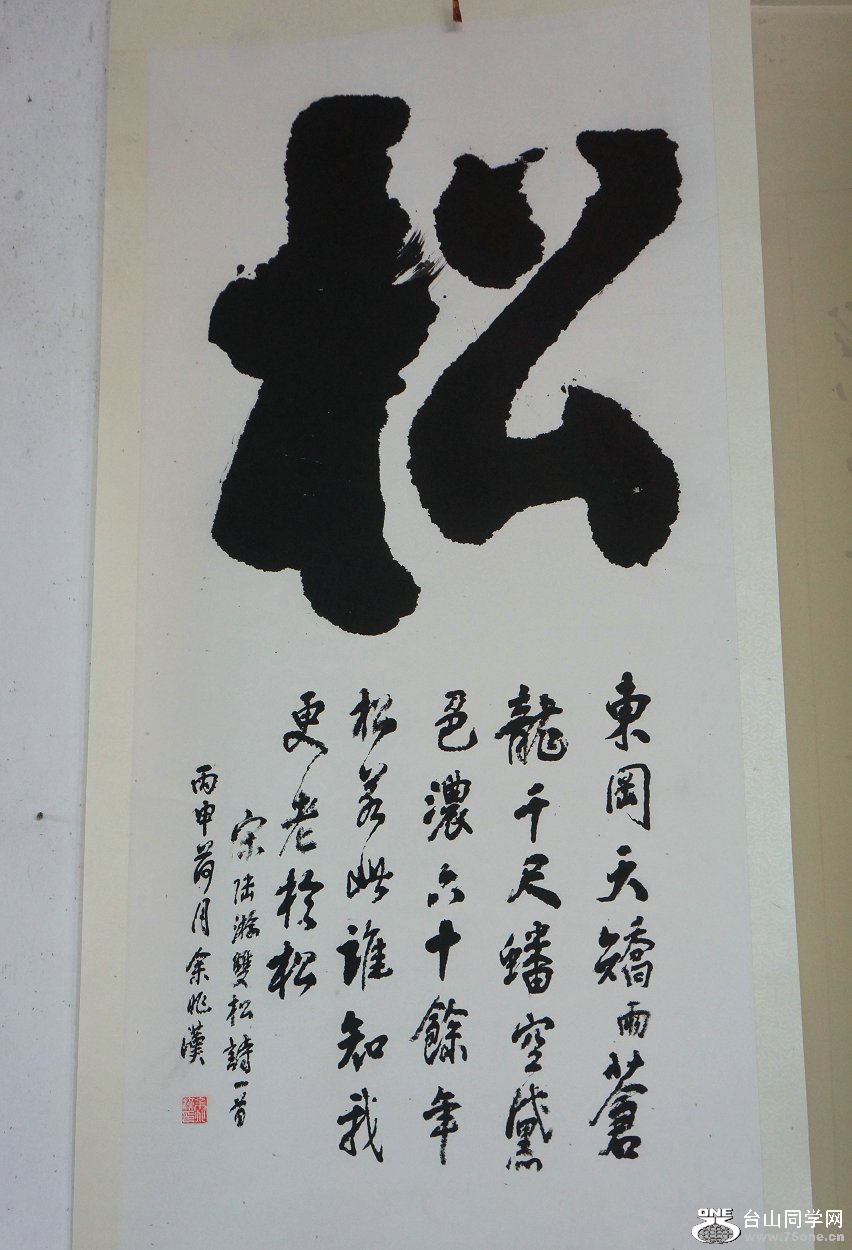 松
東岡夭矯兩蒼
龍千尺蟠空黛
色濃六十餘年
松若此誰知我
更老於松
宋陆游雙松詩一首
丙申荷月余兆漢
ONE
台山同学网
www.75one.cn